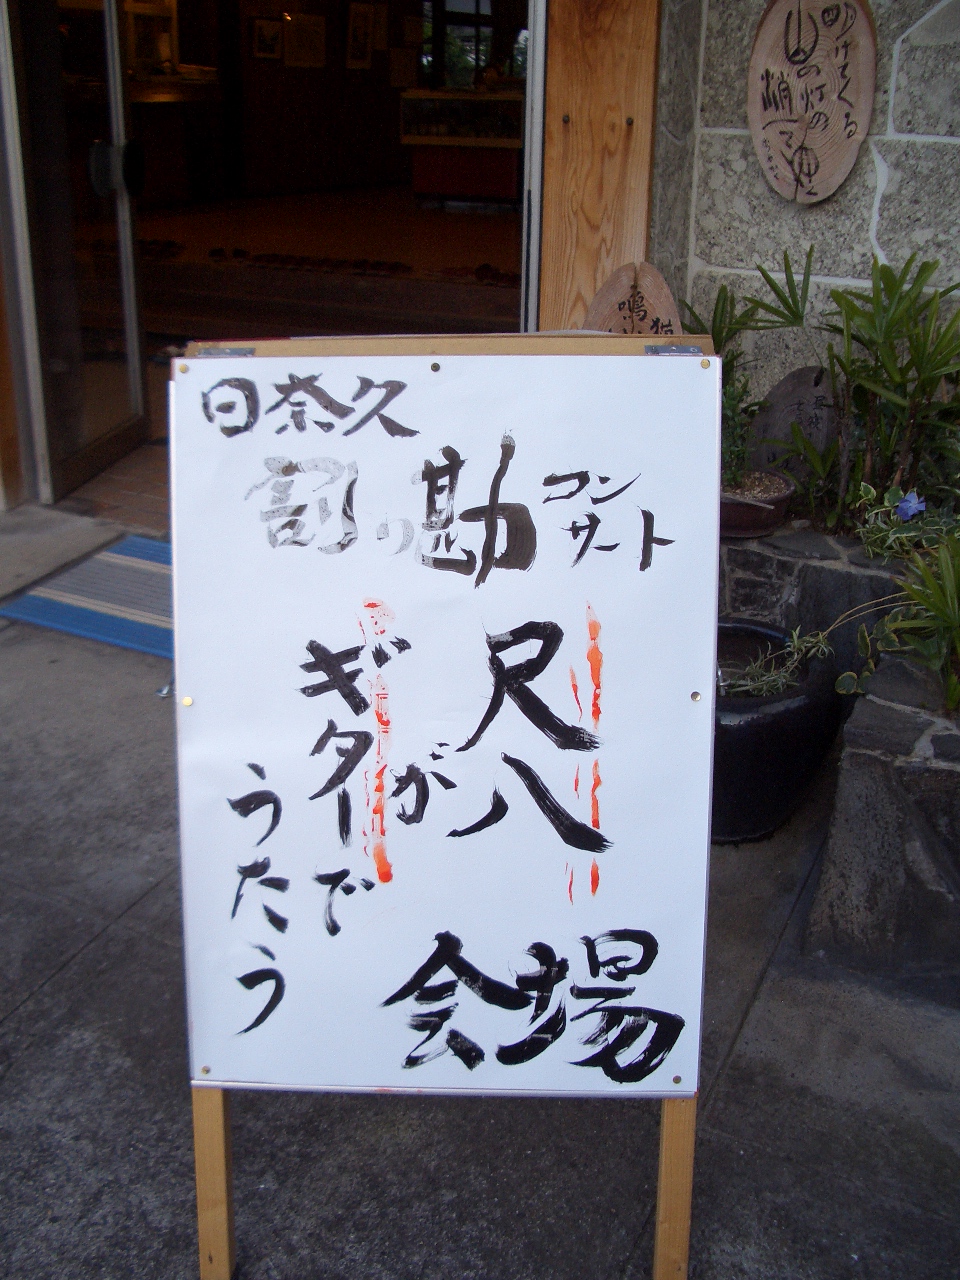 日奈久
割り勘コンサート
尺八が
ギターで
うたう
会場
明けてくる
山の灯の
消えてゆく